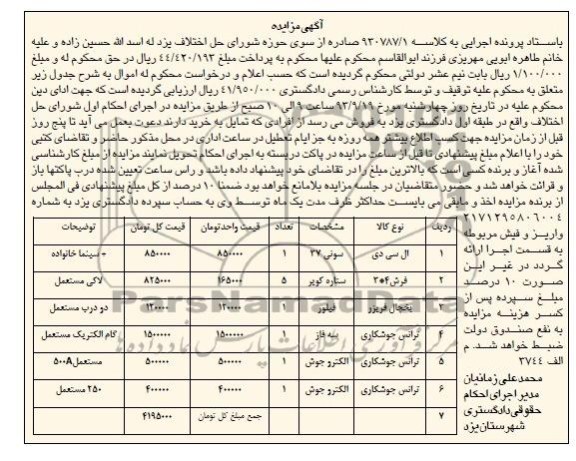 آگهی مزایده
باستناد پرونده اجرایی به کلاسه ۹۳۰۷۸۷/۱ صادره از سوی حوزه شورای حل اختلاف یزد له اسد الله حسین زاده و علیه
خانم طاهره ابویی مهریزی فرزند ابوالقاسم محکوم علیها محکوم به پرداخت مبلغ ۴۴/۴۲۰/۱۹۳ ریال در حق محکوم له و مبلغ
۱/۱۰۰/۰۰۰ ریال بابت نیم عشر دولتی محکوم گردیده است که حسب اعلام و درخواست محکوم له اموال به شرح جدول زیر
متعلق به محکوم علیه توقیف و توسط کارشناس رسمی دادگستری ۴۱/۹۵۰/۰۰۰ ریال ارزیابی گردیده است که جهت ادای دین
محکوم علیه در تاریخ روز چهارشنبه مورخ ۹۳/۹/۱۹ ساعت ۹ الی ۱۰ صبح از طریق مزایده در اجرای احکام اول شورای حل
اختلاف واقع در طبقه اول دادگستری یزد به فروش می رسد از افرادی که تمایل به خرید دارند دعوت بعمل می آید تا پنج روز
قبل از زمان مزایده جهت کسب اطلاع بیشتر همه روزه به جز ایام تعطیل در ساعت اداری در محل مذکور حاضر و تقاضای کتبی
خود را با اعلام مبلغ پیشنهادی تا قبل از ساعت مزایده در پاکت دربسته به اجرای احکام تحویل نمایند مزایده از مبلغ کارشناسی
شده آغاز و برنده کسی است که بالاترین مبلغ را در تقاضای خود پیشنهاد داده باشد و راس ساعت تعیین شده درب پاکتها باز
و قرائت خواهد شد و حضور متقاضیان در جلسه مزایده بلامانع خواهد بود ضمنا ۱۰ درصد از کل مبلغ پیشنهادی فی المجلس
از برنده مزایده اخذ و مابقی می بایست حداکثر ظرف مدت یک ماه توسط وی به حساب سپرده دادگستری یزد به شماره
۲۱۷۱۲۹۵۸۰۶۰۰۴
واریز و فیش مربوطه
به قسمت اجرا ارائه
گردد در غیر این
صورت ۱۰ درصد
مبلغ سپرده پس از
کسر هزینه مزایده
به نفع صندوق دولت
ضبط خواهد شد. م
الف ۳۷۴۴
محمدعلی زمانیان
مدیر اجرای احکام
حقوقی دادگستری
شهرستان یزد
ردیف نوع کالا مشخصات تعداد قیمت واحد تومان قیمت کل تومان توضیحات
۱ ال سی دی سونی ۳۷ ۱ ۸۵۰۰۰۰ ۸۵۰۰۰۰ + سینما خانواده
۲ فرش ۴*۳ ستاره کویر ۵ ۱۶۵۰۰۰ ۸۲۵۰۰۰ لاکی مستعمل
۳ یخچال فریزر فیلور ۱ ۱۲۰۰۰۰ ۱۲۰۰۰۰ دو درب مستعمل
۴ ترانس جوشکاری سه فاز ۱ ۱۵۰۰۰۰۰ ۱۵۰۰۰۰۰ گام الکتریک مستعمل
۵ ترانس جوشکاری الکترو جوش ۱ ۵۰۰۰۰۰ ۵۰۰۰۰۰ مستعمل ۵۰۰A
۶ ترانس جوشکاری الکترو جوش ۱ ۴۰۰۰۰۰ ۴۰۰۰۰۰ ۲۵۰ مستعمل
۷ جمع مبلغ کل تومان ۴۱۹۵۰۰۰
ParsNamadData
مرکز فرآوری اطلاعات پارس نماد داده ها